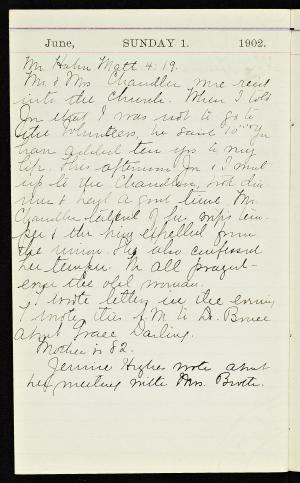 June, SUNDAY 1. 1902.
Mr Hahn Matt 4:19.
Mr & Mrs Chandler were recd
into the Church. When I told
Jn that I was not to go to
the Volunteers, he said "You
have added ten yrs to my
life. This afternoon Jn & I went
up to the Chandlers, took din
ner & had a good time. Mr.
Chandler helped of his wife's tem-
per & the being expelled from
the union. She also confessed
her temper. We all
the old woman.
I wrote letters in the evening
I wrote this P.M. to Dr. Bruce
about Grace Darling.
Mother is 82.
Jennie Hughes wrote about
her meeting with Mrs. Booth.